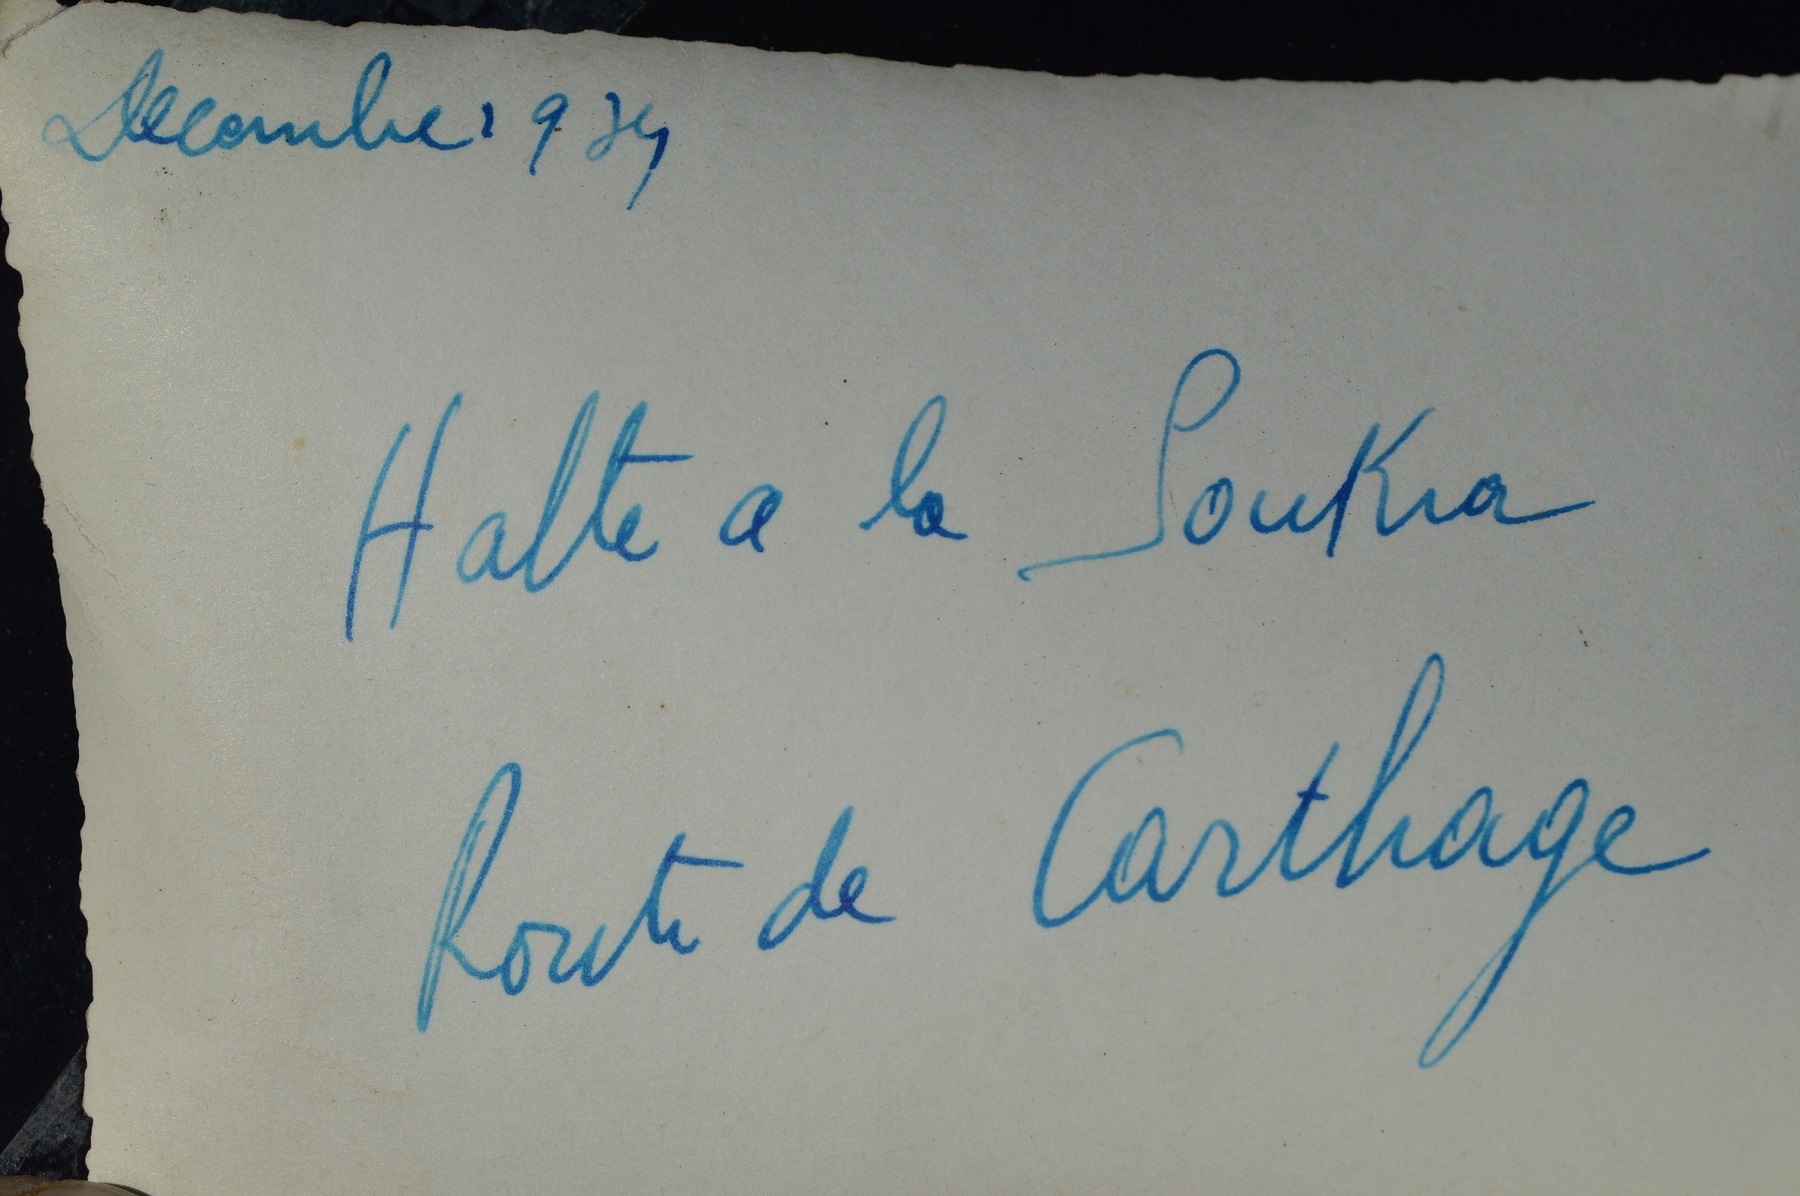 Decembre 1934
Halte a la Soukra
Route de Carthage